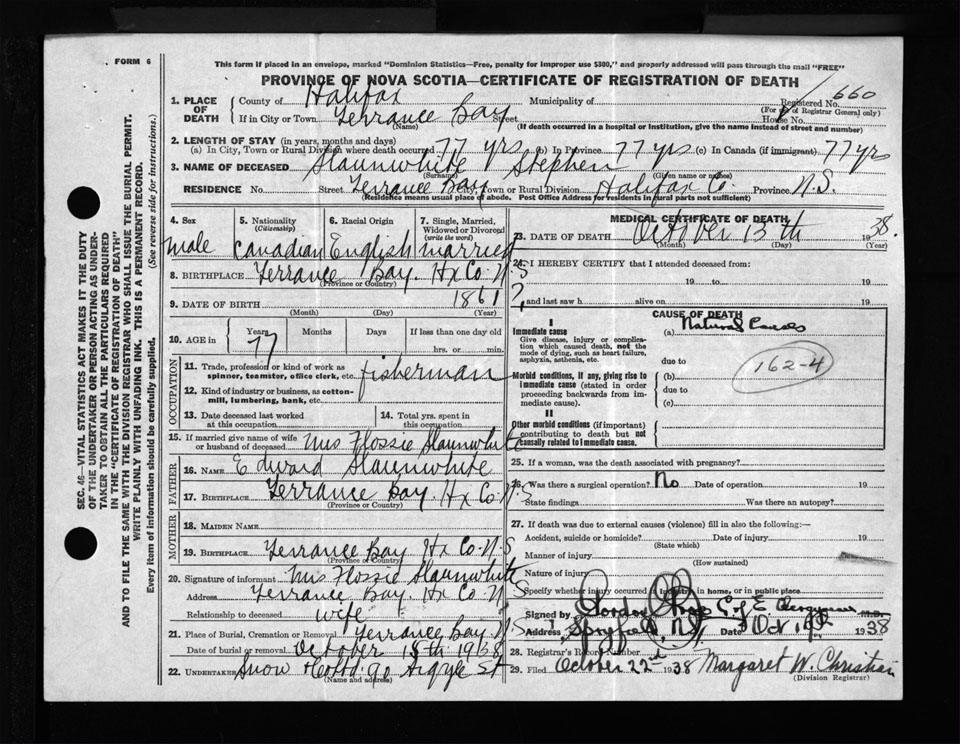 FORM 6
This form if placed in an envelope, marked "Dominion Statistics—Free, penalty for improper use $300," and properly addressed will pass through the mail "FREE"
PROVINCE OF NOVA SCOTIA—CERTIFICATE OF REGISTRATION OF DEATH
1. PLACE OF DEATH County of Halifax Municipality of Registered No. 660
(For use of Registrar General only)
If in City or Town Terrance Bay Street House No.
(Name) (If death occurred in a hospital or institution, give the name instead of street and number)
2. LENGTH OF STAY (in years, months and days)
(a) In City, Town or Rural Division where death occurred 77 yrs (b) In Province 77 yrs (c) In Canada (if immigrant) 77 yrs
3. NAME OF DECEASED Slaunwhite Stephen
(Surname) (Given name or names)
RESIDENCE No. Street Terrance Bay City, Town or Rural Division Halifax Co. Province N.S.
(Residence means usual place of abode. Post Office Address for residents in rural parts not sufficient)
4. Sex male
5. Nationality (Citizenship) Canadian
6. Racial Origin English
7. Single, Married, Widowed or Divorced (write the word) married
8. BIRTHPLACE Terrance Bay Hx Co. N S
(Province or Country)
9. DATE OF BIRTH 1861
(Month) (Day) (Year)
10. AGE in Years 77 Months Days If less than one day old
hrs. or min.
OCCUPATION
11. Trade, profession or kind of work as spinner, teamster, office clerk, etc. fisherman
12. Kind of industry or business, as cotton-mill, lumbering, bank, etc.
13. Date deceased last worked at this occupation
14. Total yrs. spent in this occupation
15. If married give name of wife or husband of deceased Mrs Flossie Slaunwhite
FATHER
16. NAME Edward Slaunwhite
17. BIRTHPLACE Terrance Bay. Hx Co. N.S
(Province or Country)
MOTHER
18. MAIDEN NAME
19. BIRTHPLACE Terrance Bay Hx Co. N.S
(Province or Country)
20. Signature of informant Mrs Flossie Slaunwhite
Address Terrance Bay. Hx Co. N S
Relationship to deceased wife
21. Place of Burial, Cremation or Removal Terrance Bay N.S
Date of burial or removal October 15th 1938
22. Undertaker Snow & Co Ltd 90 Argyle St
(Name and address)
MEDICAL CERTIFICATE OF DEATH
23. DATE OF DEATH October 13th 1938.
(Month) (Day) (Year)
24. I HEREBY CERTIFY that I attended deceased from:
19 to 19
?, and last saw h alive on 19
CAUSE OF DEATH
I
Immediate cause (a) Natural Causes
Give disease, injury or complication which caused death, not the mode of dying, such as heart failure, asphyxia, asthenia, etc.
due to
162-4
Morbid conditions, if any, giving rise to immediate cause (stated in order proceeding backwards from immediate cause).
(b)
due to
(c)
II
Other morbid conditions (if important) contributing to death but not causally related to immediate cause.
25. If a woman, was the death associated with pregnancy?
26. Was there a surgical operation? No Date of operation 19
State findings Was there an autopsy?
27. If death was due to external causes (violence) fill in also the following:—
Accident, suicide or homicide? Date of injury 19
(State which)
Manner of injury
(How sustained)
Nature of injury
Specify whether injury occurred in industry, in home, or in public place
Signed by Gordon C of E Clergyman M.D.
Address Spryfield, N.S. Date Oct 19th 1938
28. Registrar's Record Number
29. Filed October 22nd 1938 Margaret W. Christian
(Division Registrar)
SEC. 46—VITAL STATISTICS ACT MAKES IT THE DUTY
OF THE UNDERTAKER OR PERSON ACTING AS UNDER-
TAKER TO OBTAIN ALL THE PARTICULARS REQUIRED
IN THE "CERTIFICATE OF REGISTRATION OF DEATH"
AND TO FILE THE SAME WITH THE DIVISION REGISTRAR WHO SHALL ISSUE THE BURIAL PERMIT.
WRITE PLAINLY WITH UNFADING INK. THIS IS A PERMANENT RECORD.
Every item of information should be carefully supplied. (See reverse side for instructions.)